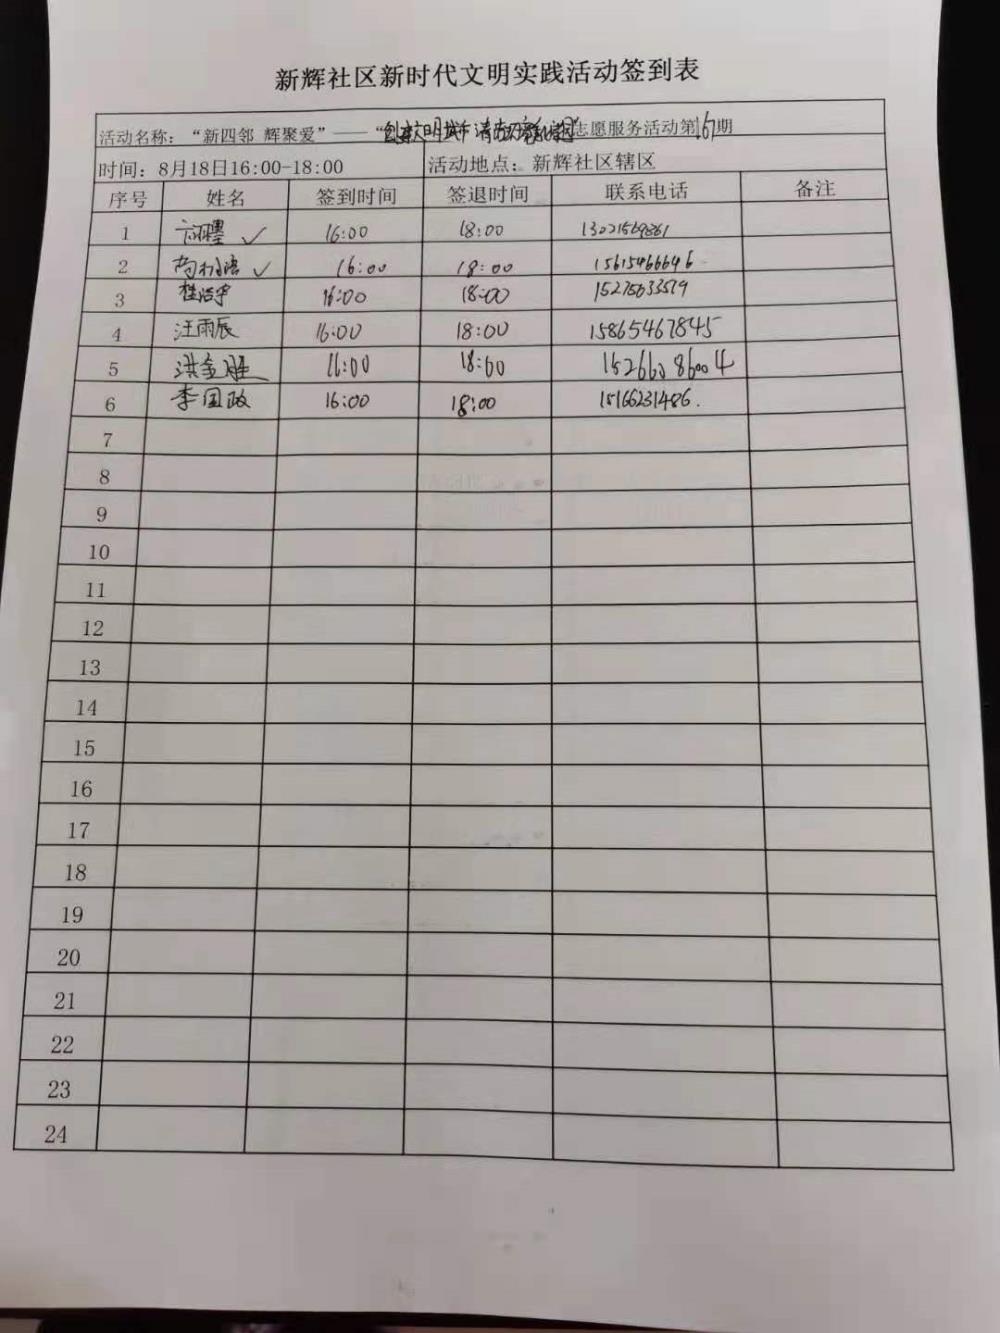 新辉社区新时代文明实践活动签到表
活动名称：“新四邻 辉聚爱”——“创建文明城市 清志愿服务活动第167期
时间：8月18日16:00-18:00 活动地点：新辉社区辖区
序号 姓名 签到时间 签退时间 联系电话 备注
1 16:00 18:00 13021569861
2 16:00 18:00 15615466646
3 桂浩宇 16:00 18:00 15275633579
4 汪雨辰 16:00 18:00 15865467845
5 洪金雕 16:00 18:00 15266086004
6 李国政 16:00 18:00 15166231486.
7
8
9
10
11
12
13
14
15
16
17
18
19
20
21
22
23
24